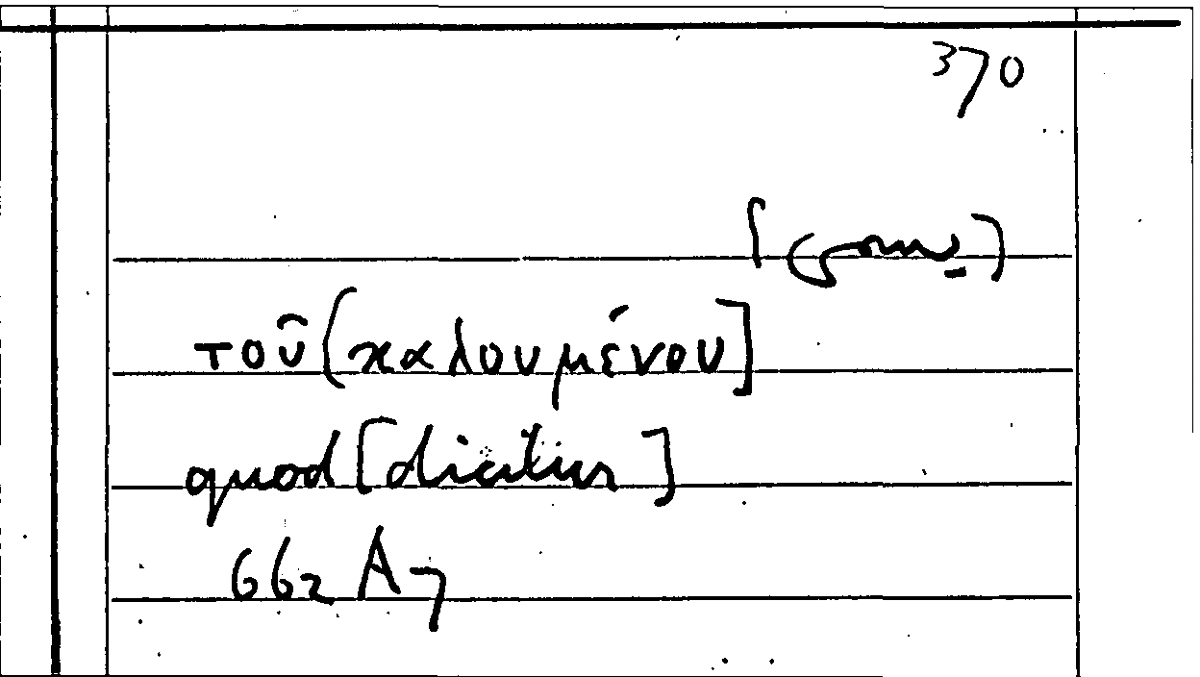 370
τοῦ [καλουμένου]
quod [dicitur]
662 A 7